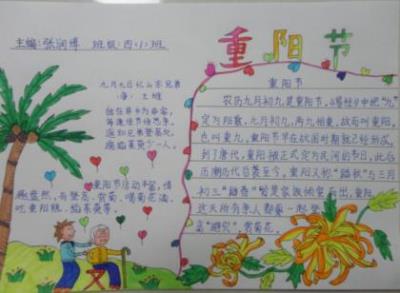 主编:张润博 班级:四(1)班
重阳节
九月九日忆山东兄弟
(唐)王维
独在异乡为异客,
每逢佳节倍思亲。
遥知兄弟登高处,
遍插茱萸少一人。
重阳节活动丰富,情
趣盎然,有登高、赏菊、喝菊花酒、
吃重阳糕、插茱萸等。
重阳节
农历九月初九是重阳节,《易经》中把"九"
定为阳数,九月初九,两九相重,故而叫重阳,
也叫重九。重阳节早在战国时期就已经形成,
到了唐代,重阳被正式定为民间的节日,此后
历朝历代沿袭至今。重阳又称"踏秋"与三月
初三"踏春"皆是家族倾室而出,重阳
这天所有亲人都要一起登
高"避灾",赏菊花。